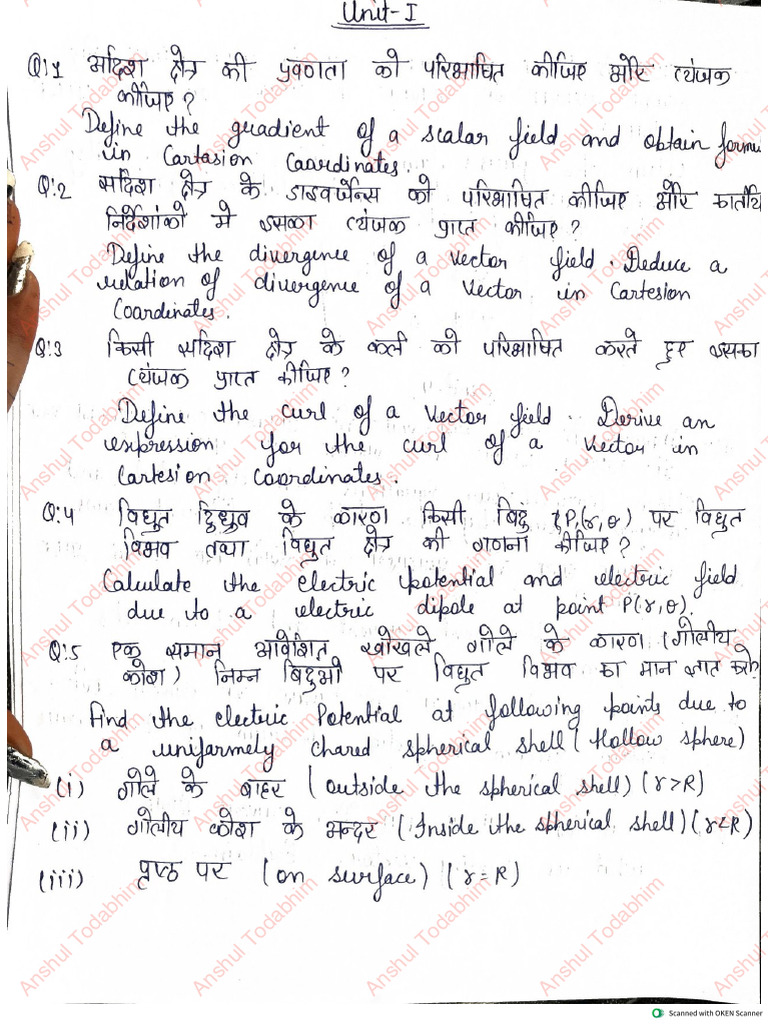 Unit-I
Q:1 अदिश क्षेत्र की प्रवणता को परिभाषित कीजिए और व्यंजक
कीजिए?
Define the guadient of a scalar field and obtain formu
in Cartasion Coardinates.
Q:2 सदिश क्षेत्र के डाइवर्जेन्स को परिभाषित कीजिए और कार्तीय
निर्देशांको मे इसका व्यंजक प्राप्त कीजिए?
Define the divergence of a vector field. Deduce a
relation of divergence of a vector in Cartesion
Coordinates.
Q:3 किसी सदिश क्षेत्र के कर्ल को परिभाषित करते हुए इसका
व्यंजक प्राप्त कीजिए?
Define the curl of a vector field. Derive an
expression for the curl of a vector in
Cartesion Coordinates.
Q:4 विधुत द्विध्रुव के कारण किसी बिंदु P(r,θ) पर विधुत
विभव तथा विधुत क्षेत्र की गणना कीजिए?
Calculate the electric potential and electric field
due to a electric dipole at point P(r,θ).
Q:5 एक समान आवेशित खोखले गोले के कारण (गोलीय
कोश) निम्न बिदुओ पर विधुत विभव का मान ज्ञात करो?
Find the electric Potential at following points due to
a uniformely chared spherical shell (Hollow sphere)
(i) गोले के बाहर (outside the spherical shell) (r>R)
(ii) गोलीय कोश के अन्दर (Inside the spherical shell) (r<R)
(iii) पृष्ठ पर (on surface) (r=R)
Anshul Todabhim
Scanned with OKEN Scanner